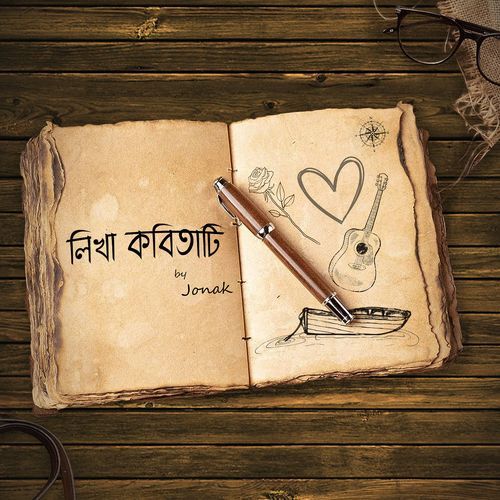 লিখা কবিতাটি
by
Jonak